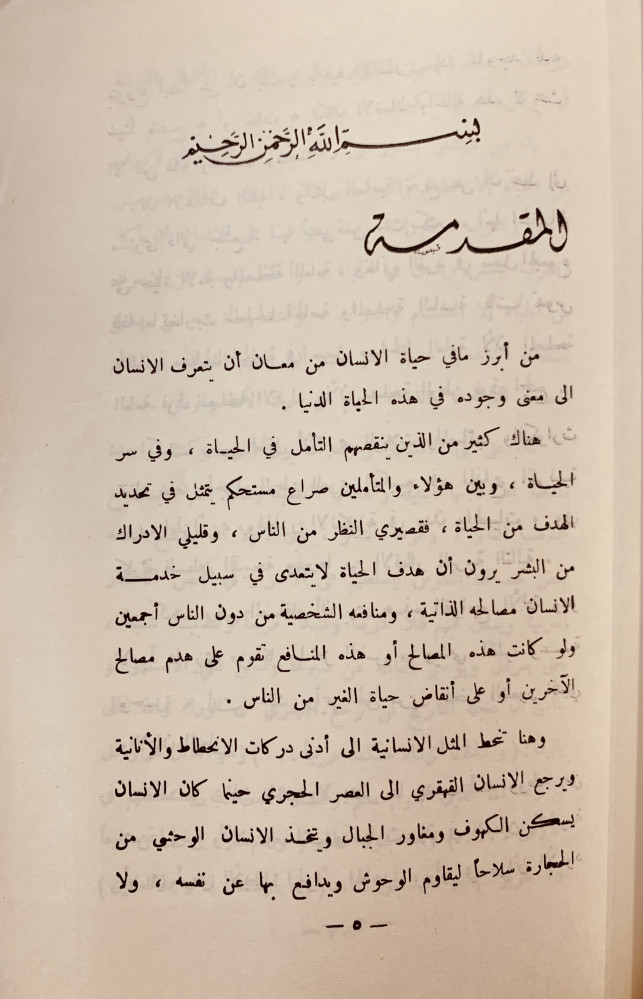 بِسْمِ اللَّهِ الرَّحْمَنِ الرَّحِيمِ
المقدمة
من أبرز مافي حياة الانسان من معان أن يتعرف الانسان
الى معنى وجوده في هذه الحياة الدنيا .
هناك كثير من الذين ينقصهم التأمل في الحياة ، وفي سر
الحياة ، وبين هؤلاء والمتأملين صراع مستحكم يتمثل في تحديد
الهدف من الحياة ، فقصيري النظر من الناس ، وقليلي الادراك
من البشر يرون أن هدف الحياة لايتعدى في سبيل خدمة
الانسان مصالحه الذاتية ، ومنافعه الشخصية من دون الناس أجمعين
ولو كانت هذه المصالح أو هذه المنافع تقوم على هدم مصالح
الآخرين أو على أنقاض حياة الغير من الناس .
وهنا تنحط المثل الانسانية الى أدنى دركات الانحطاط والأنانية
ويرجع الانسان القهقرى الى العصر الحجري حينما كان الانسان
يسكن الكهوف ومغاور الجبال ويتخذ الانسان الوحشي من
الحجارة سلاحاً ليقاوم الوحوش ويدافع بها عن نفسه ، ولا
— ٥ —